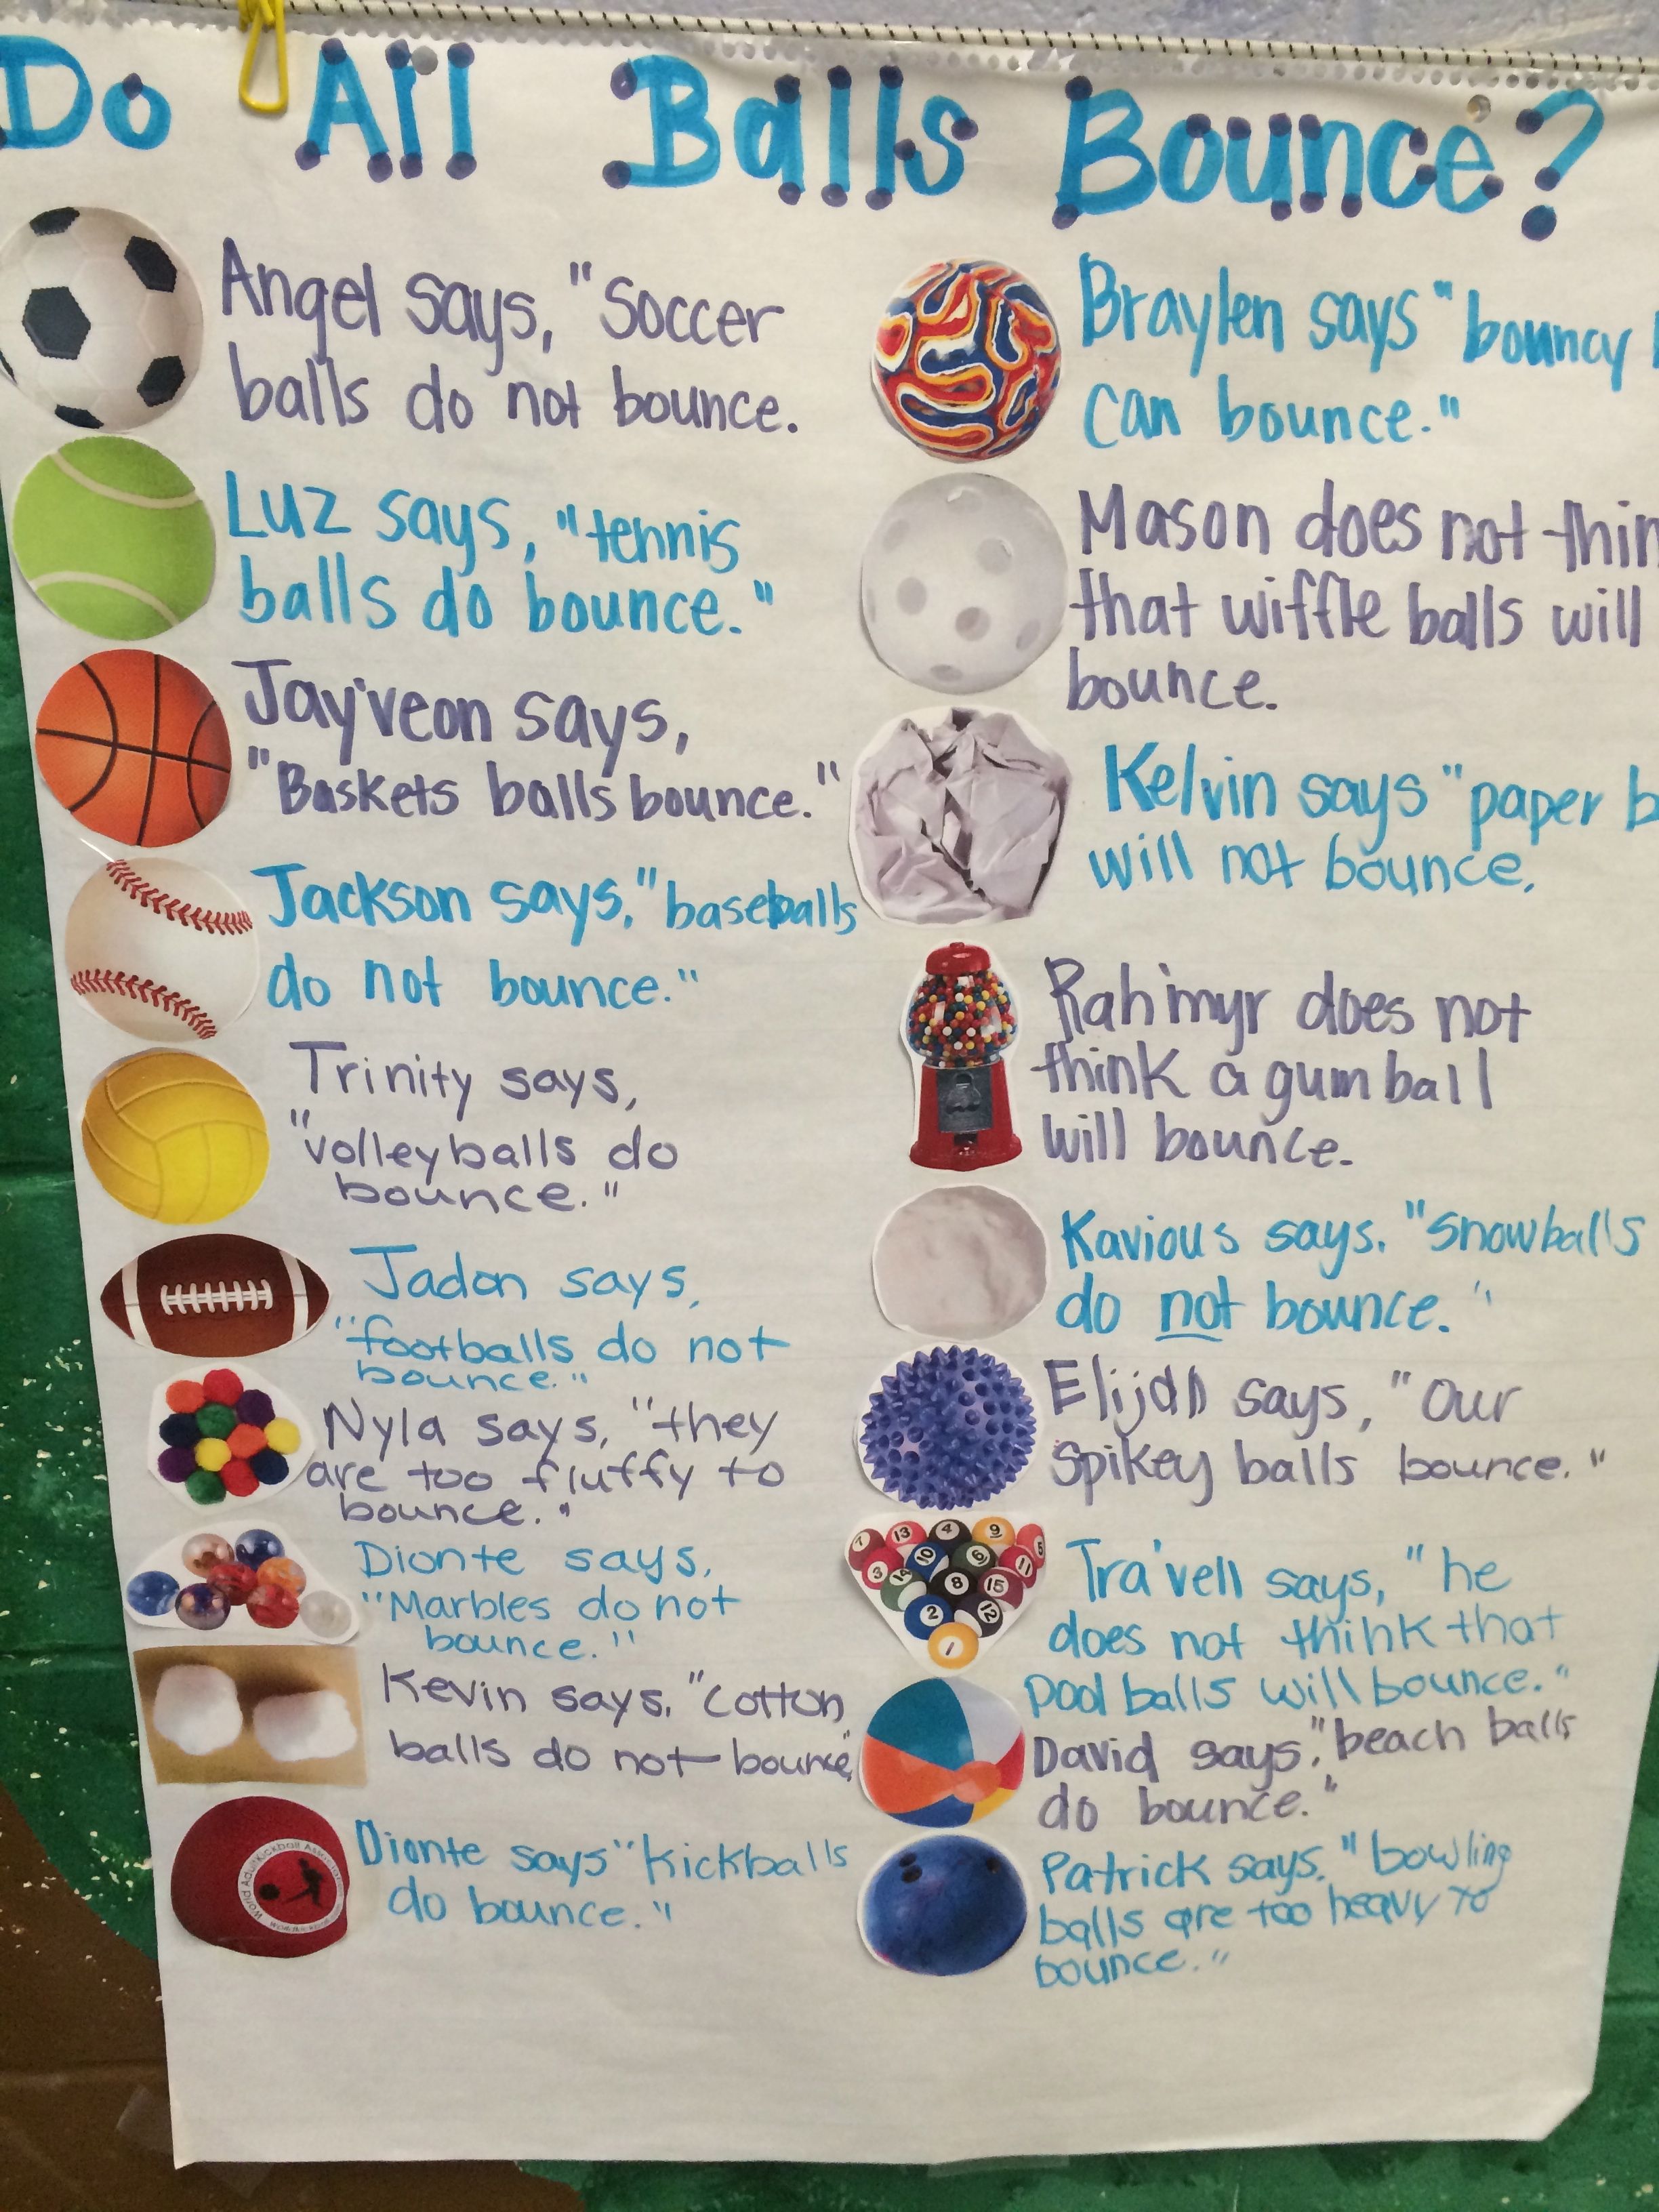 Do All Balls Bounce?
Angel says, "Soccer
balls do not bounce.
Luz says, "tennis
balls do bounce."
Jay'veon says,
"Baskets balls bounce."
Jackson says, "baseballs
do not bounce."
Trinity says,
"volleyballs do
bounce."
Jadon says,
"footballs do not
bounce."
Nyla says, "they
are too fluffy to
bounce."
Dionte says,
"Marbles do not
bounce."
Kevin says, "Cotton
balls do not bounce"
Dionte says "kickballs
do bounce."
Braylen says "bouncy
can bounce."
Mason does not thin
that wiffle balls will
bounce.
Kelvin says "paper b
will not bounce.
Rah'myr does not
think a gum ball
will bounce.
Kavious says, "snowballs
do not bounce."
Elijah says, "Our
Spikey balls bounce."
7 13 4 9 5
3 14 10 6 11
8 15
2 12
1
Tra'vell says, "he
does not think that
pool balls will bounce."
David says, "beach balls
do bounce."
Patrick says, "bowling
balls are too heavy to
bounce."